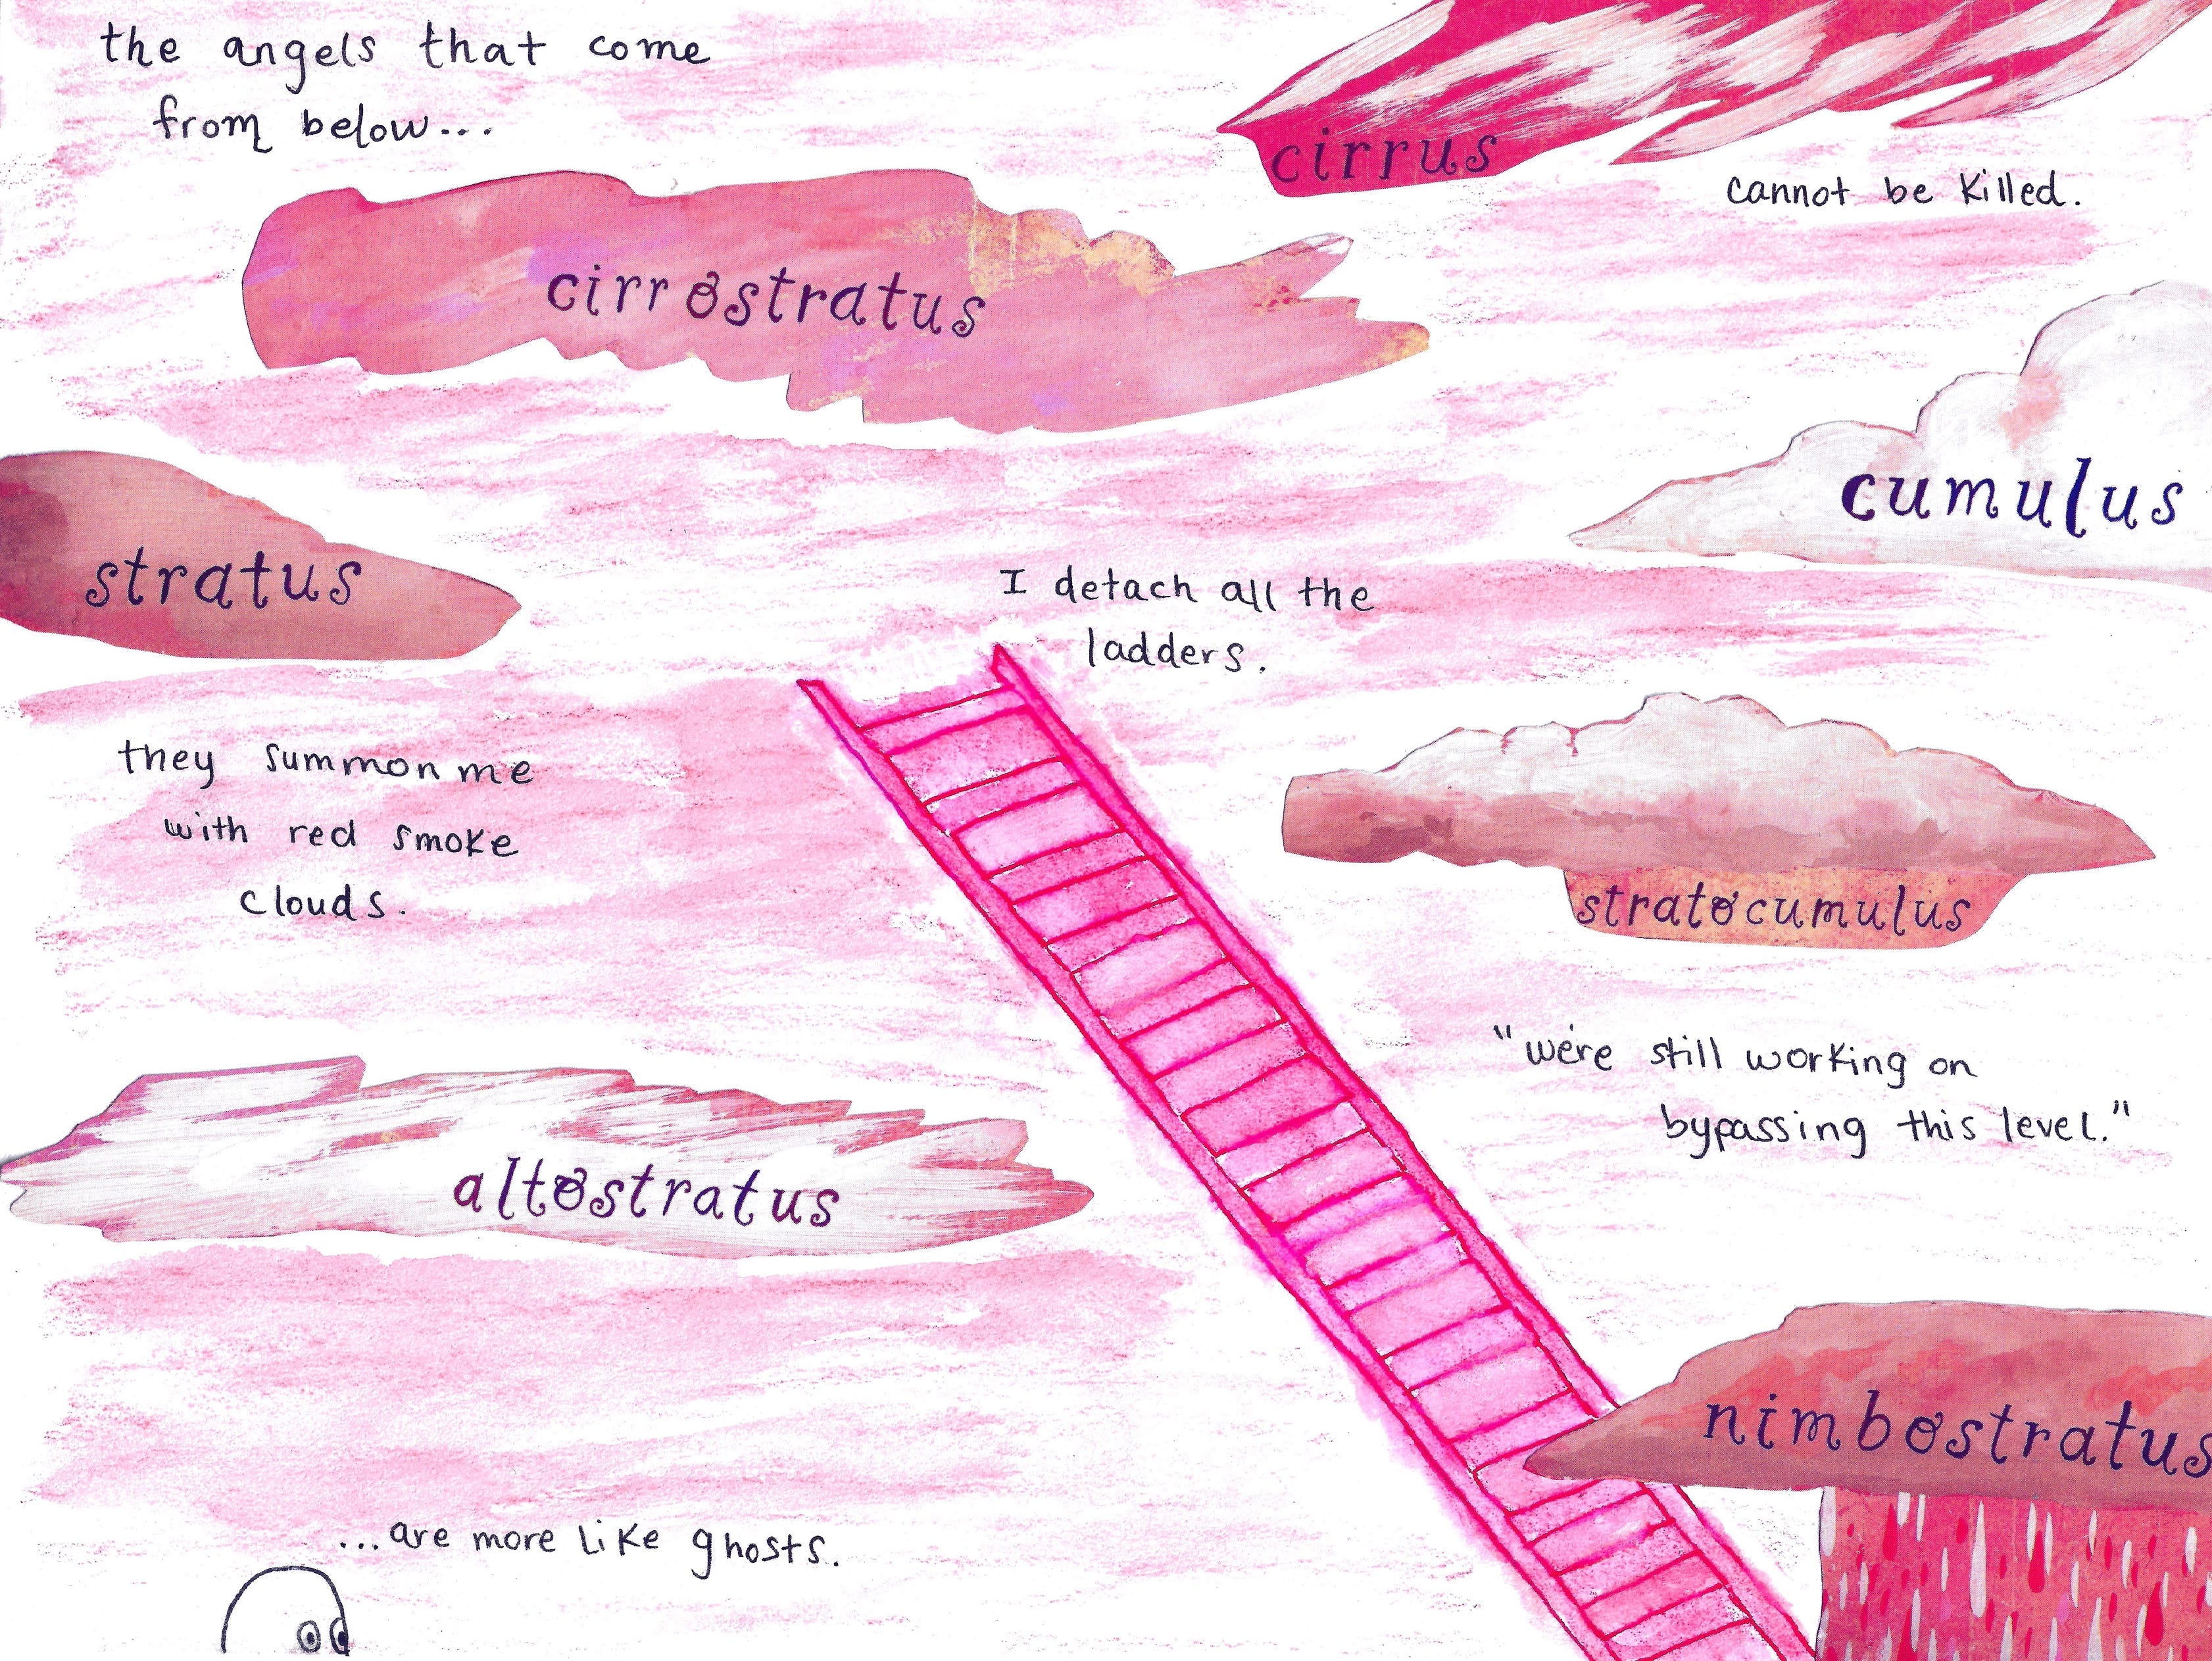 the angels that come
from below...
cirrus
cannot be killed.
cirrostratus
cumulus
stratus
I detach all the
ladders.
they summon me
with red smoke
clouds.
stratocumulus
"we're still working on
bypassing this level."
altostratus
nimbostratus
...are more like ghosts.